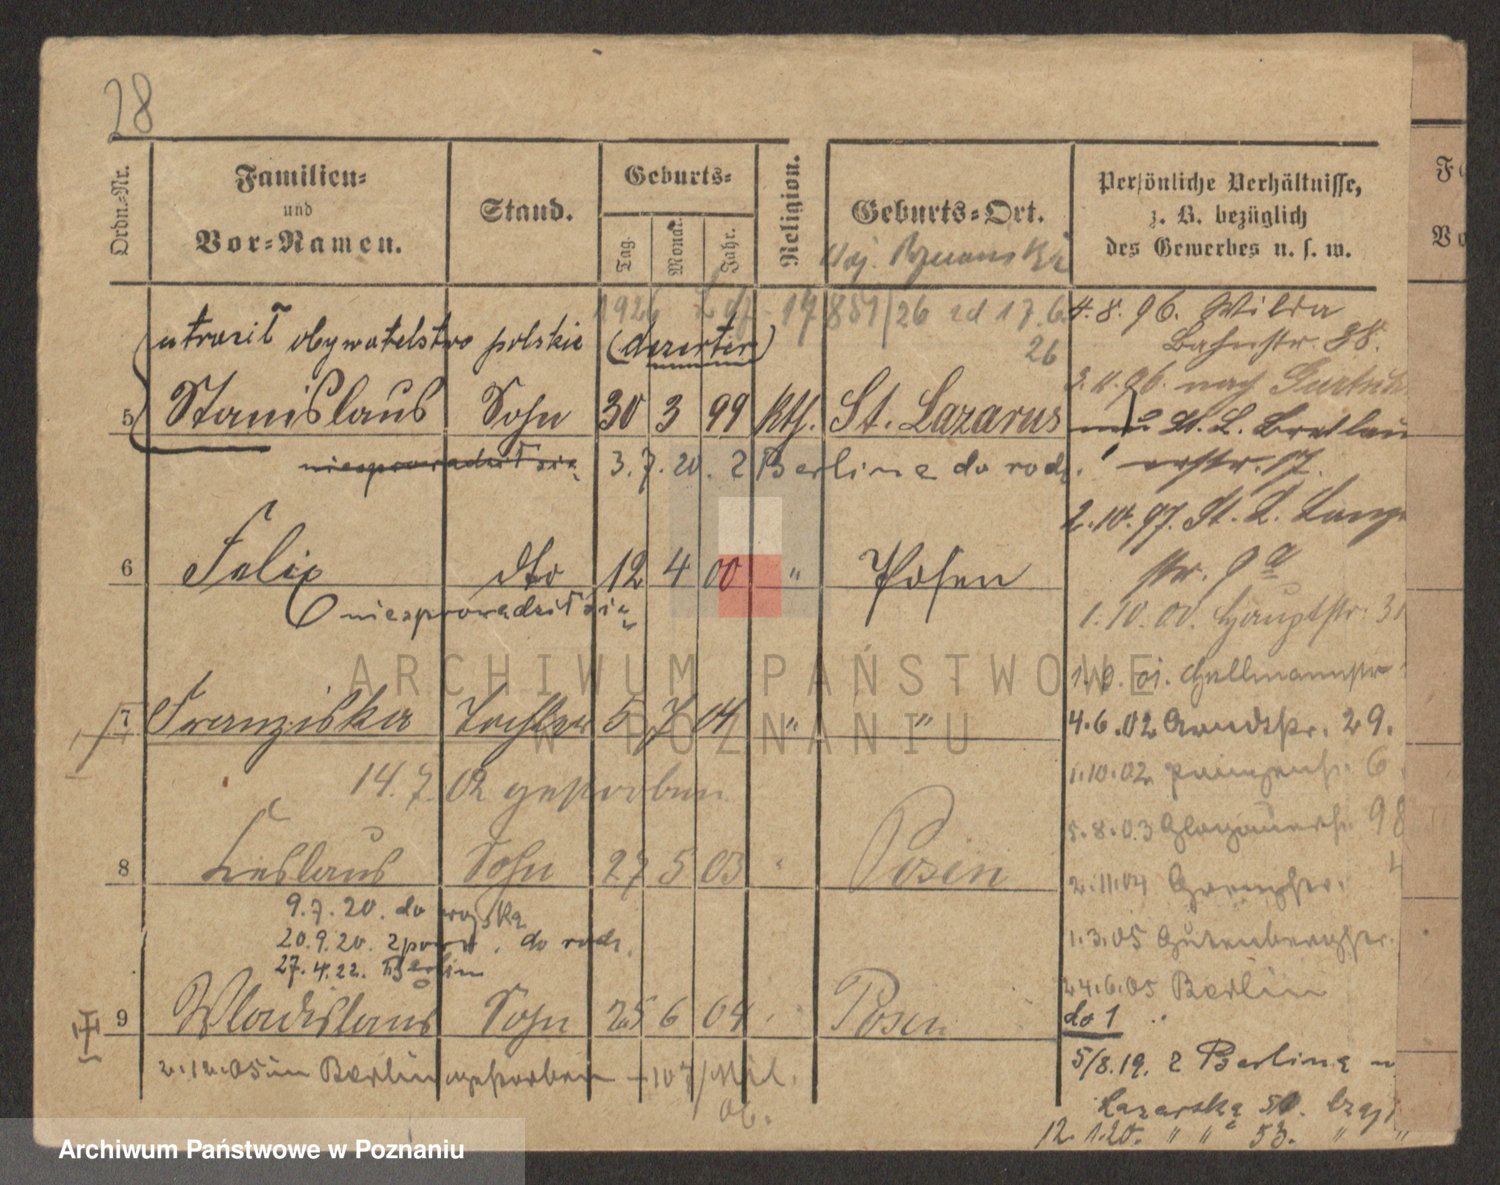 28
Ordn.-Nr.
Familien-
und
Vor-Namen.
Stand.
Geburts-
Tag.
Monat.
Jahr.
Religion.
Geburts-Ort.
Persönliche Verhältnisse,
z. B. bezüglich
des Gewerbes u. s. w.
1926 17851/26 zd 17.6.
26
utracił obywatelstwo polskie (dezerter)
5 Stanislaus Sohn 30 3 99 kth. St. Lazarus
niesprowadził się 3.7.20. z Berlina do rodz.
6 Felix dto 12 4 00 " Posen
niesprowadził się
7 Franziska Tochter 5 7 01 " "
14.7.02 gestorben
8 Ceslaus Sohn 27 5 03 " Posen
9.7.20. do wojska
20.9.20. z powr. do rodz.
27.4.22. Berlin
9 Wladislaus Sohn 25 6 04 Posen
2.12.05 in Berlin gestorben
4.8.96. Wilda
Bahnstr. 38.
3.11.96. nach
St. L. Breslau
erstr. 17.
2.10.97. St. L.
str. 9a
1.10.00. Hauptstr. 31
Hellmannstr
4.6.02 29.
1.10.02 6
5.8.03 Glogauerstr. 98
2.11.04
1.3.05 Gutenbergstr.
24.6.05 Berlin
do 1
5/8.19. z Berlina
Lazarska 50.
12.1.20. " " 53. " "
ARCHIWUM PAŃSTWOWE
W POZNANIU
Archiwum Państwowe w Poznaniu